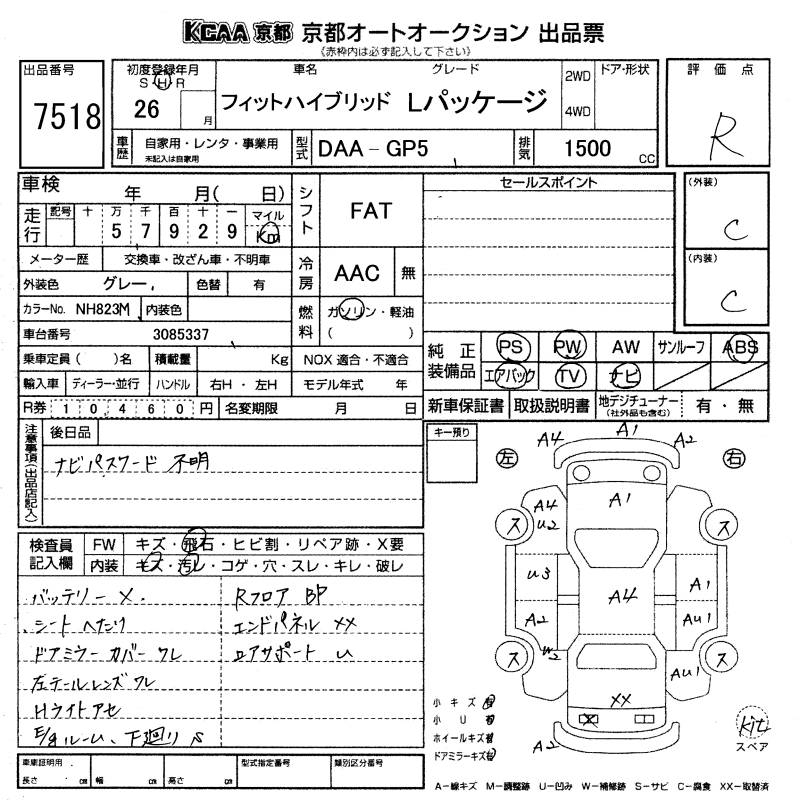 KCAA 京都 京都オートオークション 出品票
《赤枠内は必ず記入して下さい》
出品番号
7518
初度登録年月
S H R
26 月
車名 グレード
フィットハイブリッド Lパッケージ
2WD
4WD
ドア・形状
評価点
R
車歴
自家用・レンタ・事業用
未記入は自家用
型式
DAA-GP5
排気
1500 CC
車検 年 月( 日)
走行
記号 十 万 千 百 十 一 マイル
5 7 9 2 9 Km
シフト
FAT
セールスポイント
(外装)
C
(内装)
C
メーター歴 交換車・改ざん車・不明車
冷房
AAC 無
外装色 グレー 色替 有
カラーNo. NH823M 内装色
燃料
ガソリン・軽油
( )
車台番号 3085337
乗車定員( )名 積載量 Kg NOX 適合・不適合
輸入車 ディーラー・並行 ハンドル 右H・左H モデル年式 年
R券 10,460円 名変期限 月 日
純正装備品
PS PW AW サンルーフ ABS
エアバック TV ナビ
新車保証書 取扱説明書 地デジチューナー (社外品も含む) 有・無
注意事項(出品店記入)
後日品
ナビパスワード 不明
キー預り
検査員記入欄
FW キズ・飛石・ヒビ割・リペア跡・X要
内装 キズ・汚レ・コゲ・穴・スレ・キレ・破レ
バッテリー X.
シート ヘたり
ドアミラー カバー ワレ
左テールレンズ ワレ
Hライトアセ
E/gルーム、下廻り S
Rフロア BP
エンドパネル XX
エアサポート U
左 右
A4 A1 A2
A4
U2
A1
ス ス
U3
A4
A1
A2
AU1
ス ス
W2
AU1
XX
X
A2
小キズ 有
小 U 有
ホイールキズ 有
ドアミラーキズ 有
kit
スペア
車庫証明用
長さ cm 幅 cm 高さ cm
型式指定番号
類別区分番号
A-線キズ M-調整跡 U-凹み W-補修跡 S-サビ C-腐食 XX-取替済